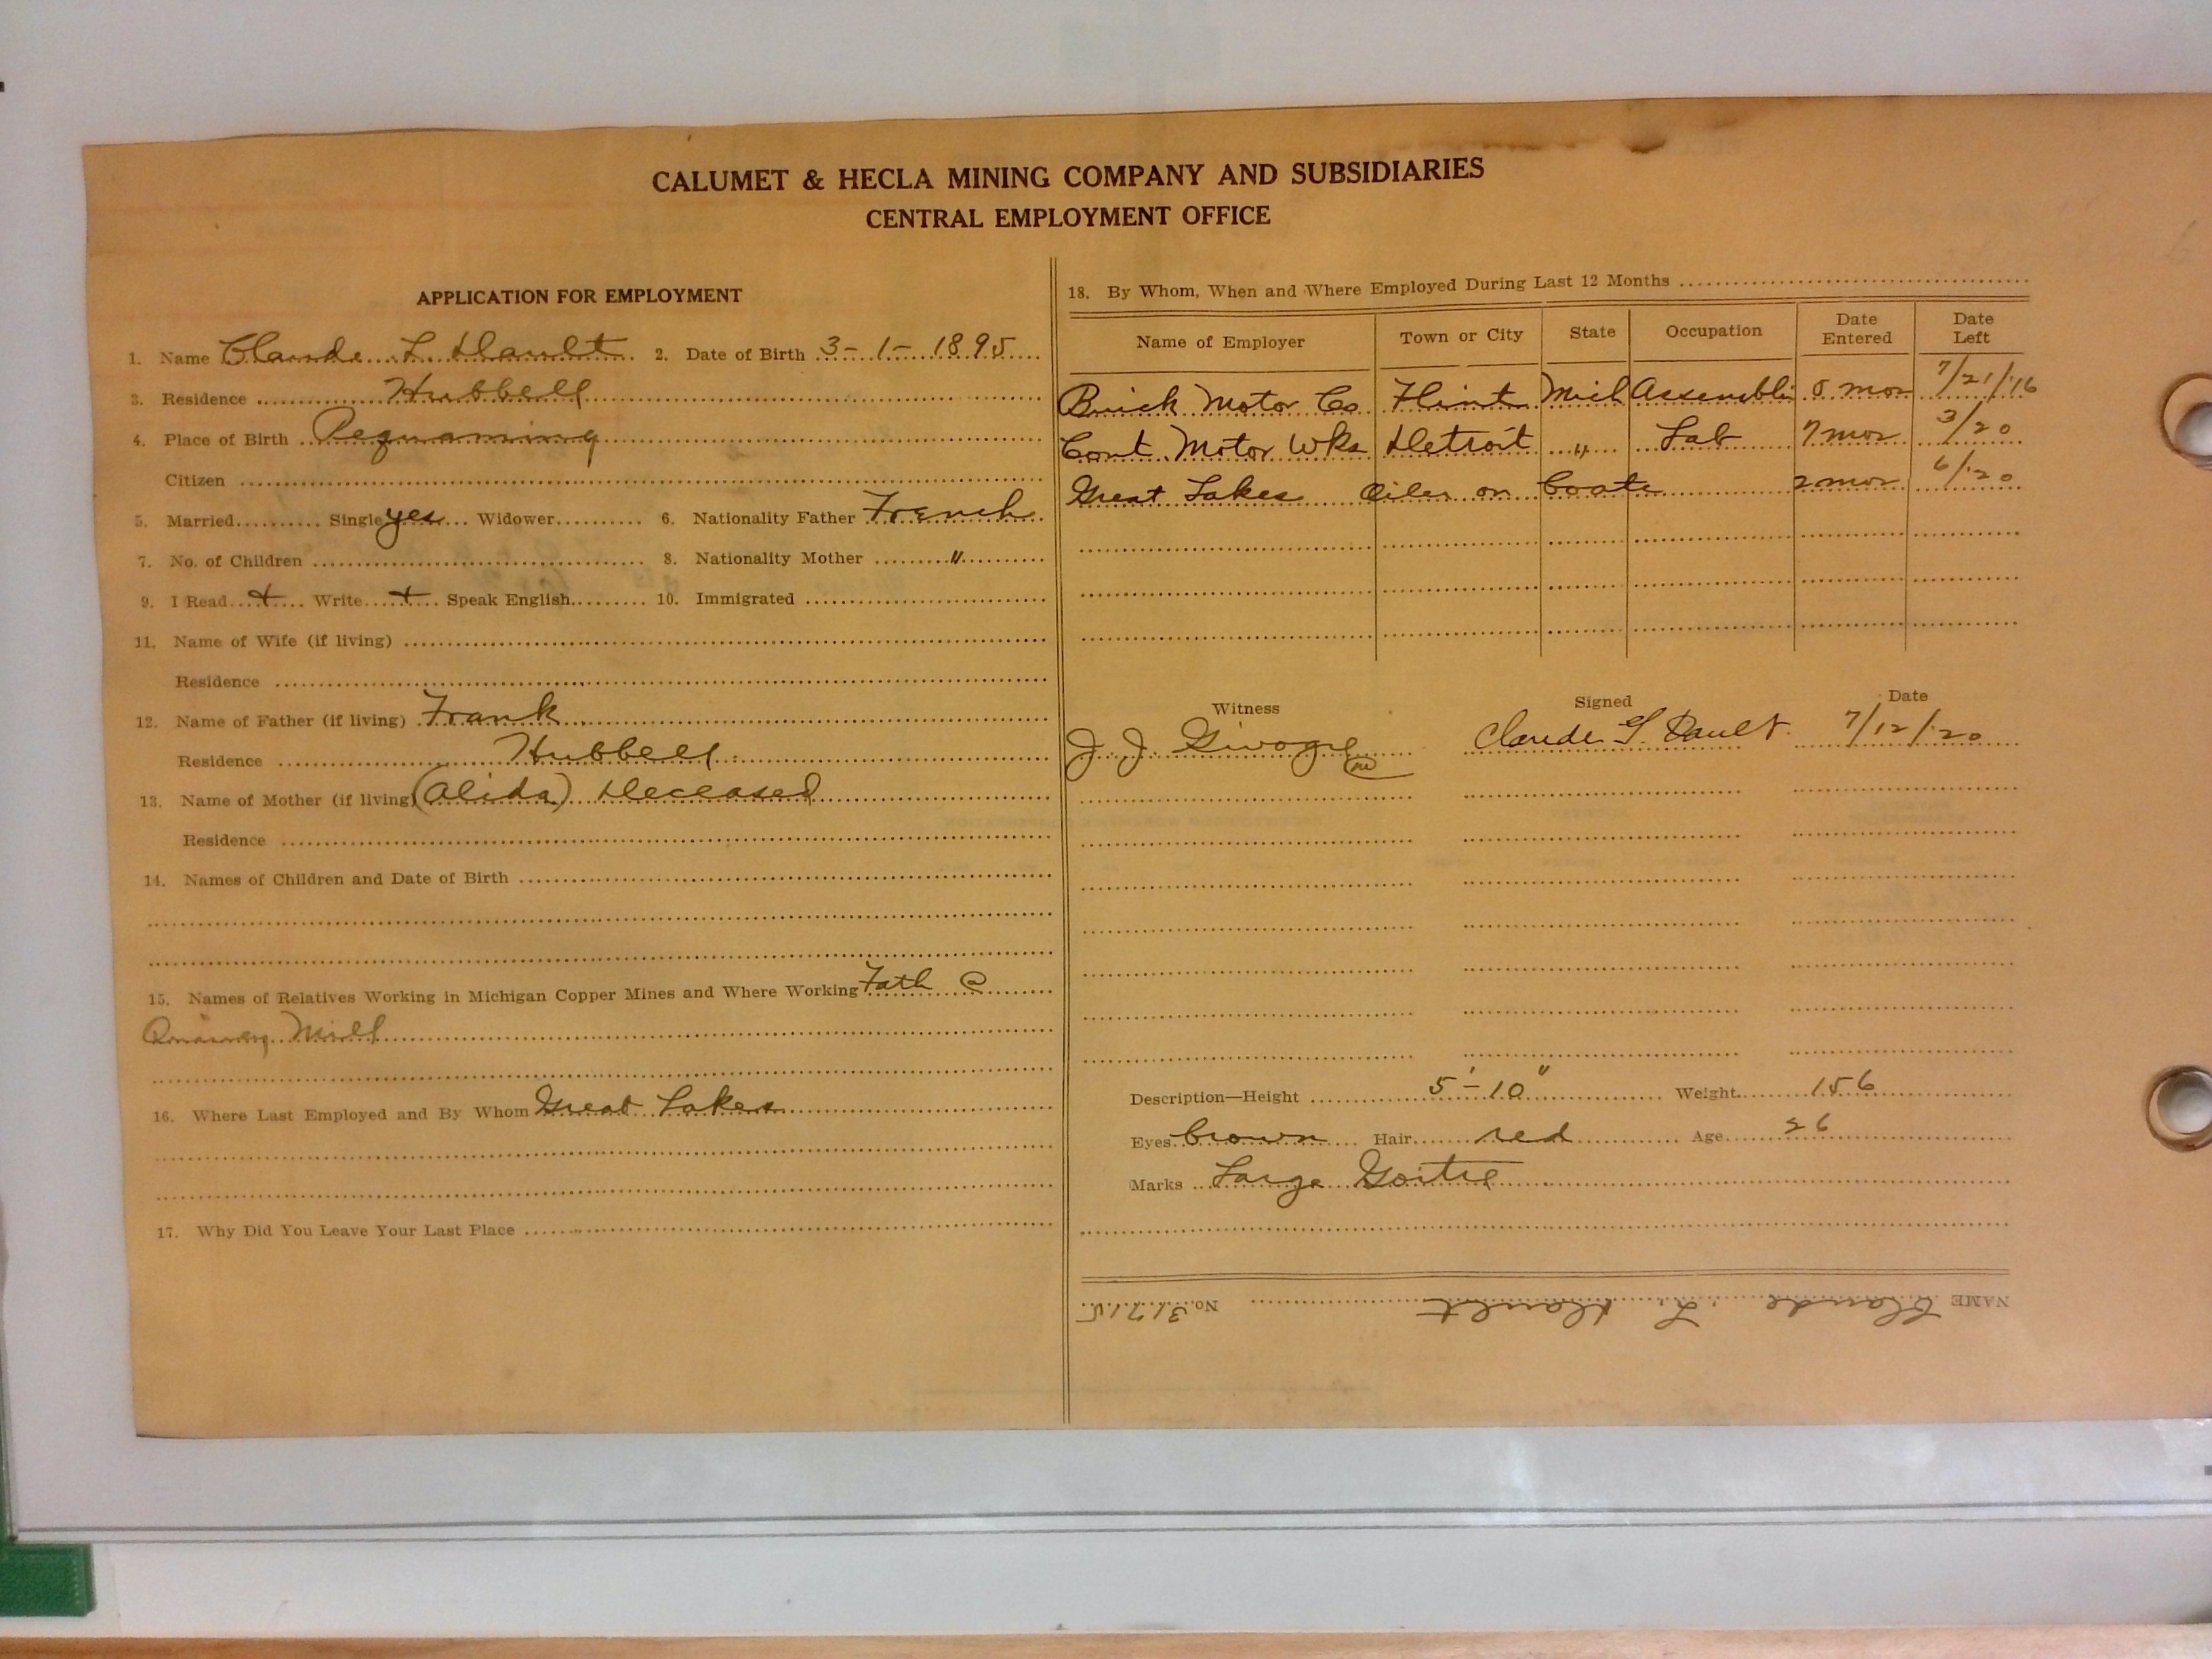 CALUMET & HECLA MINING COMPANY AND SUBSIDIARIES
CENTRAL EMPLOYMENT OFFICE
APPLICATION FOR EMPLOYMENT
1. Name Claude L. Dault 2. Date of Birth 3-1-1895
3. Residence Hubbell
4. Place of Birth Pequaming
Citizen
5. Married Single yes Widower 6. Nationality Father French
7. No. of Children 8. Nationality Mother "
9. I Read + Write + Speak English 10. Immigrated
11. Name of Wife (if living)
Residence
12. Name of Father (if living) Frank
Residence Hubbell
13. Name of Mother (if living) (Alida) Deceased
Residence
14. Names of Children and Date of Birth
15. Names of Relatives Working in Michigan Copper Mines and Where Working Fath @
Quincy Mill
16. Where Last Employed and By Whom Great Lakes
17. Why Did You Leave Your Last Place
18. By Whom, When and Where Employed During Last 12 Months
Name of Employer Town or City State Occupation Date Entered Date Left
Buick Motor Co Flint Mich Assembli mos 7/21/'16
Cont. Motor Wks Detroit " Lab 7 mos 3/20
Great Lakes Oiler on boats 2 mos 6/'20
Witness Signed Date
J. J. Claude L. Dault 7/12/'20
Description—Height 5'-10" Weight 156
Eyes brown Hair red Age 26
Marks Large Goitre
NAME Claude L. Dault No. 31715